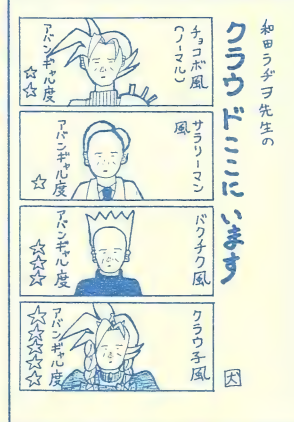 和田ラヂヲ先生の
クラウドここにいます
チョコボ風
(ノーマル)
アバンギャルド度
☆☆
サラリーマン
風
アバンギャルド度
☆
バクチク風
アバンギャルド度
☆☆☆
クラウ子風
アバンギャルド度
☆☆☆☆☆
犬